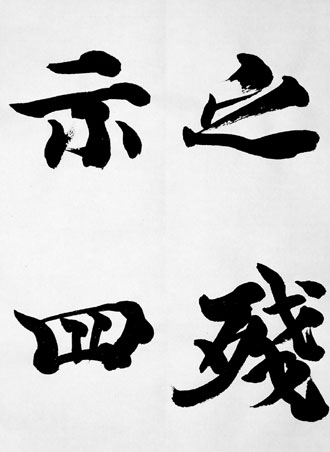 之殘
示四